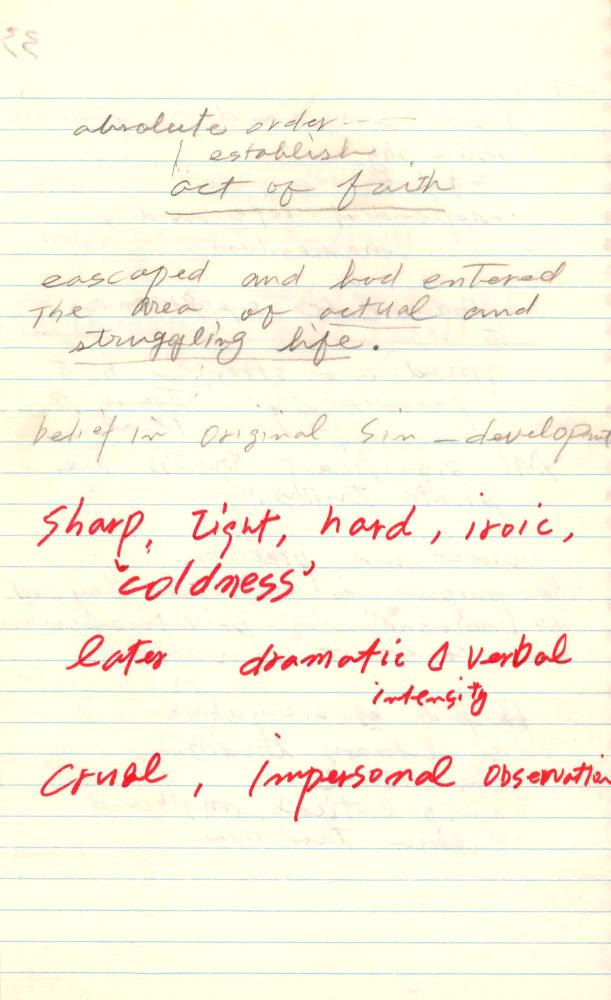 absolute order ----
establish
act of faith
eascaped and had entered
The area of actual and
struggling life.
belief in Original Sin – development
Sharp, Tight, hard, iroic,
'coldness'
later dramatic & verbal
intensity
Crual, Impersonal Observation